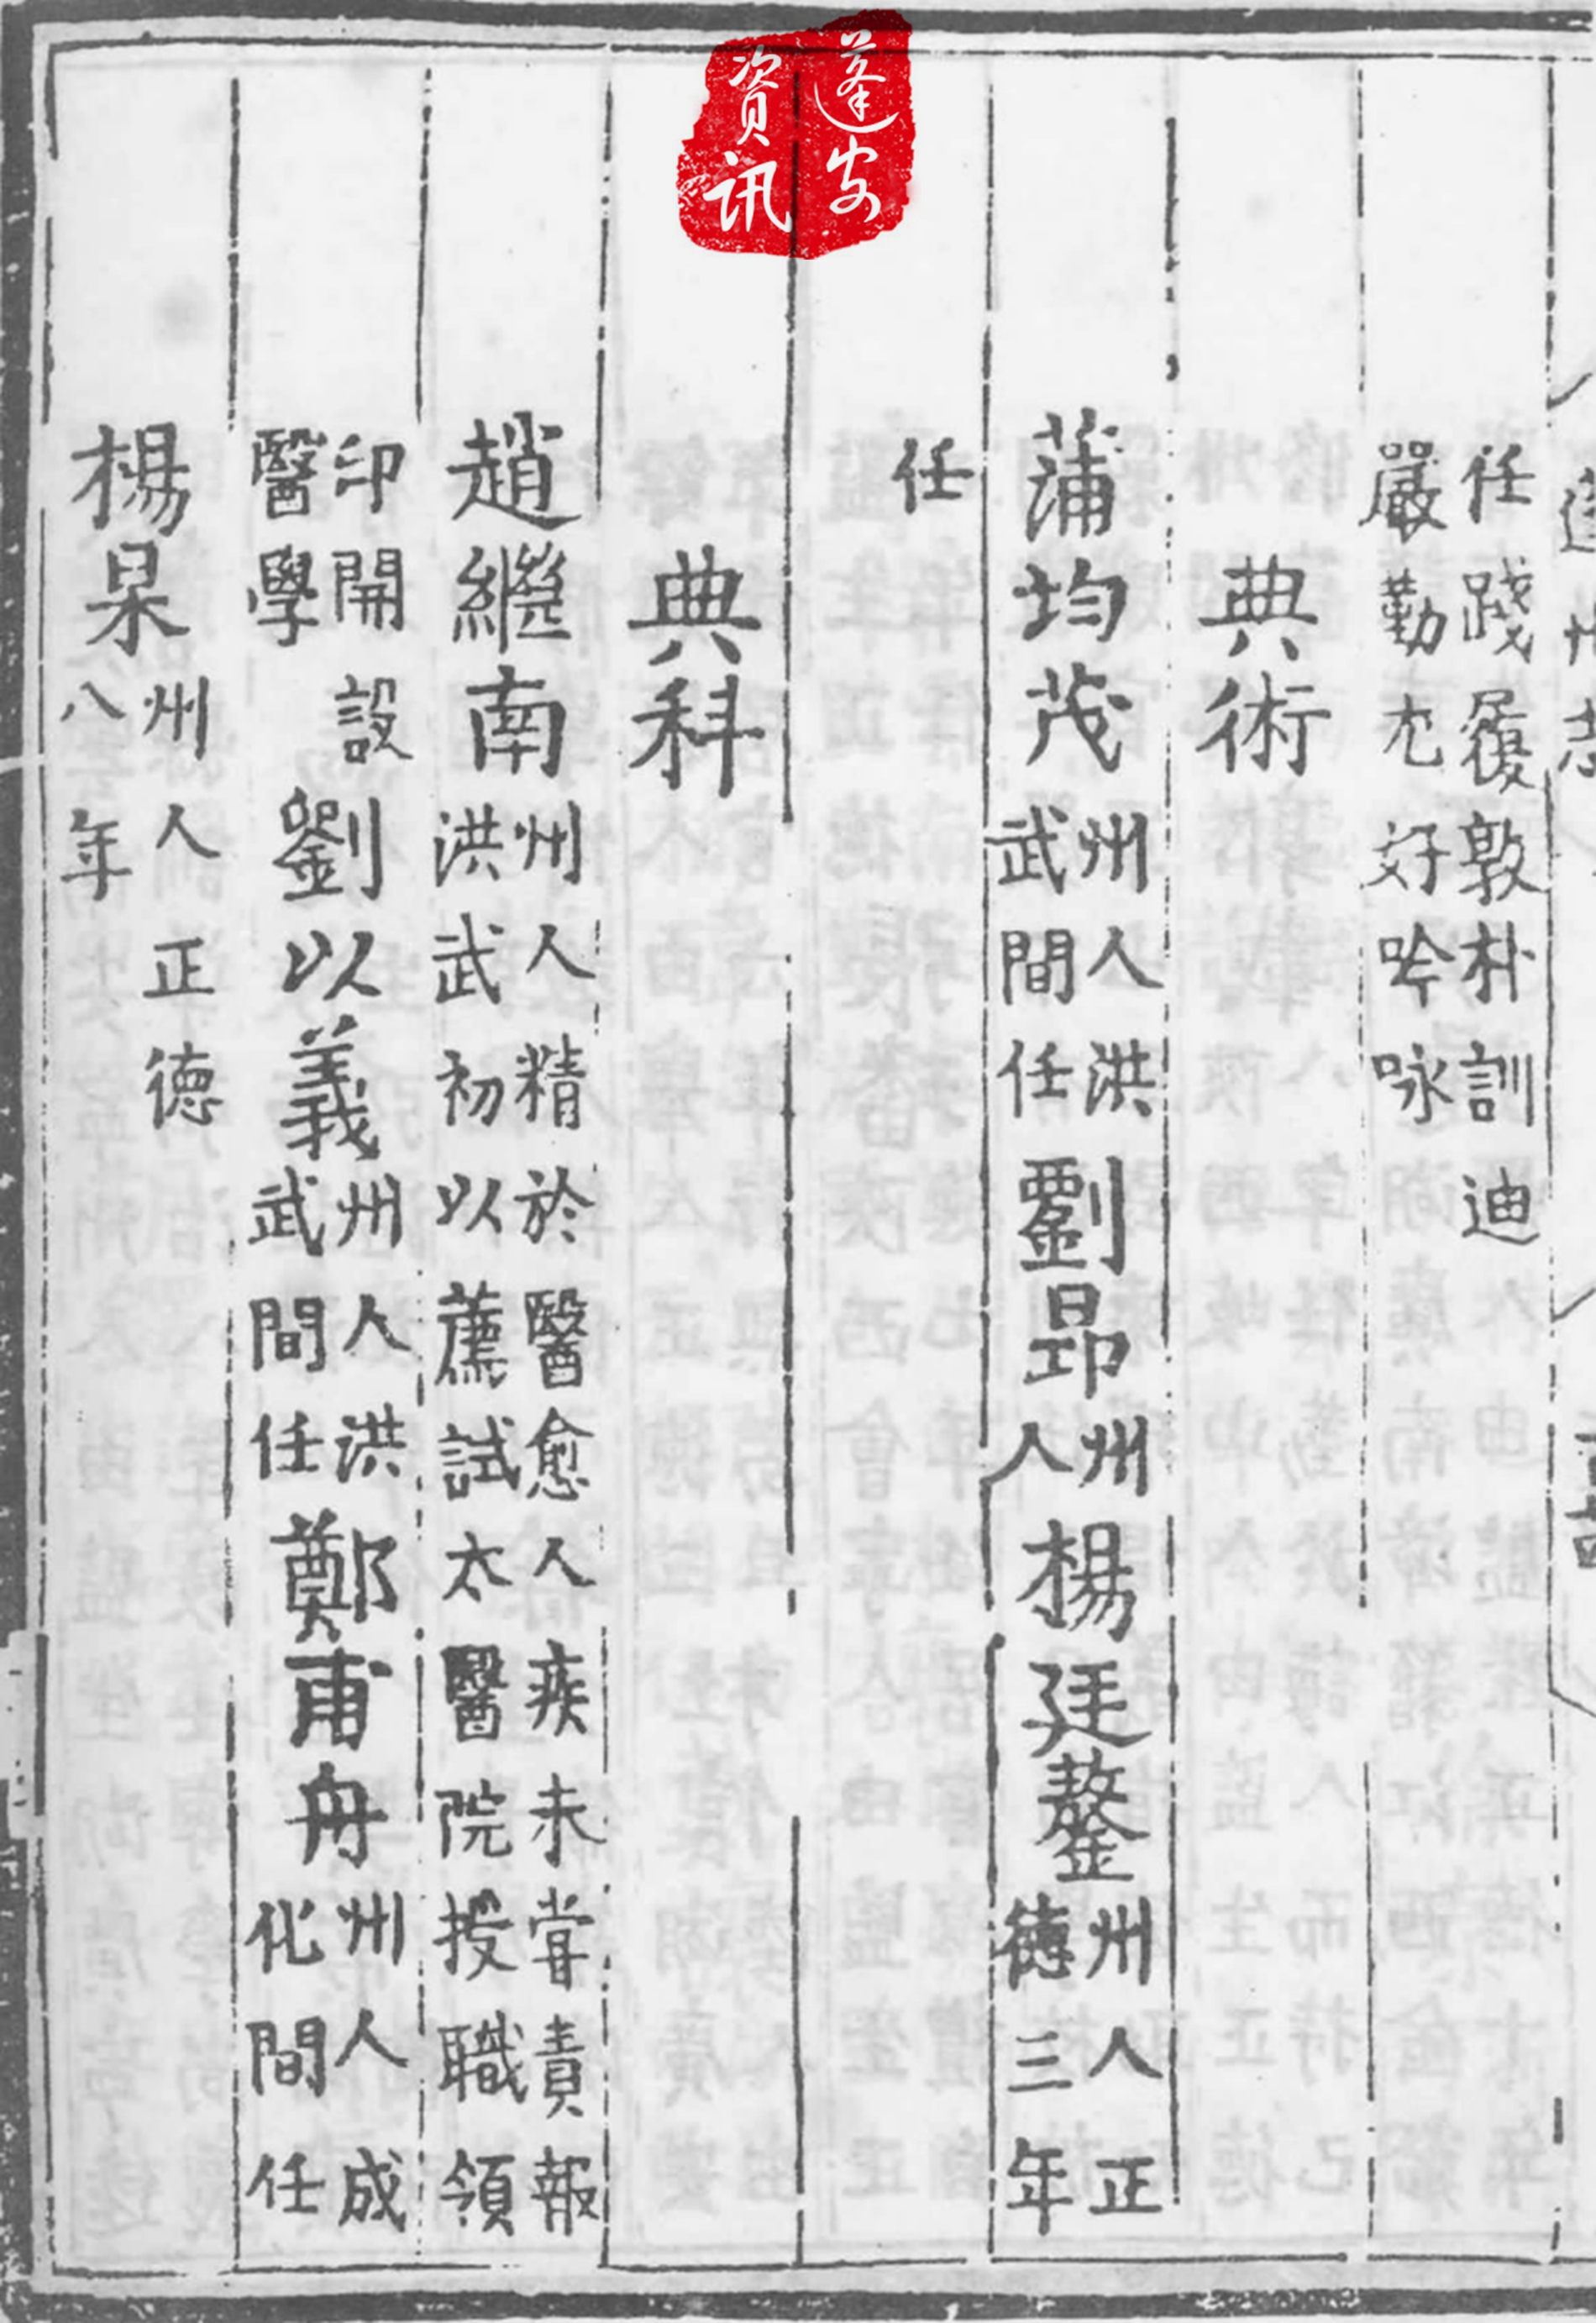 任踐履敦朴訓迪
嚴勤尤好吟咏
典術
蒲均茂州人洪武間任劉昂州人楊廷鏊州人正德三年
任
典科
趙繼南州人精於醫愈人疾未嘗責報洪武初以薦試太醫院授職領
印開設醫學劉以義州人洪武間任鄭甫舟州人成化間任
楊杲州人正德八年
蓬安
資訊